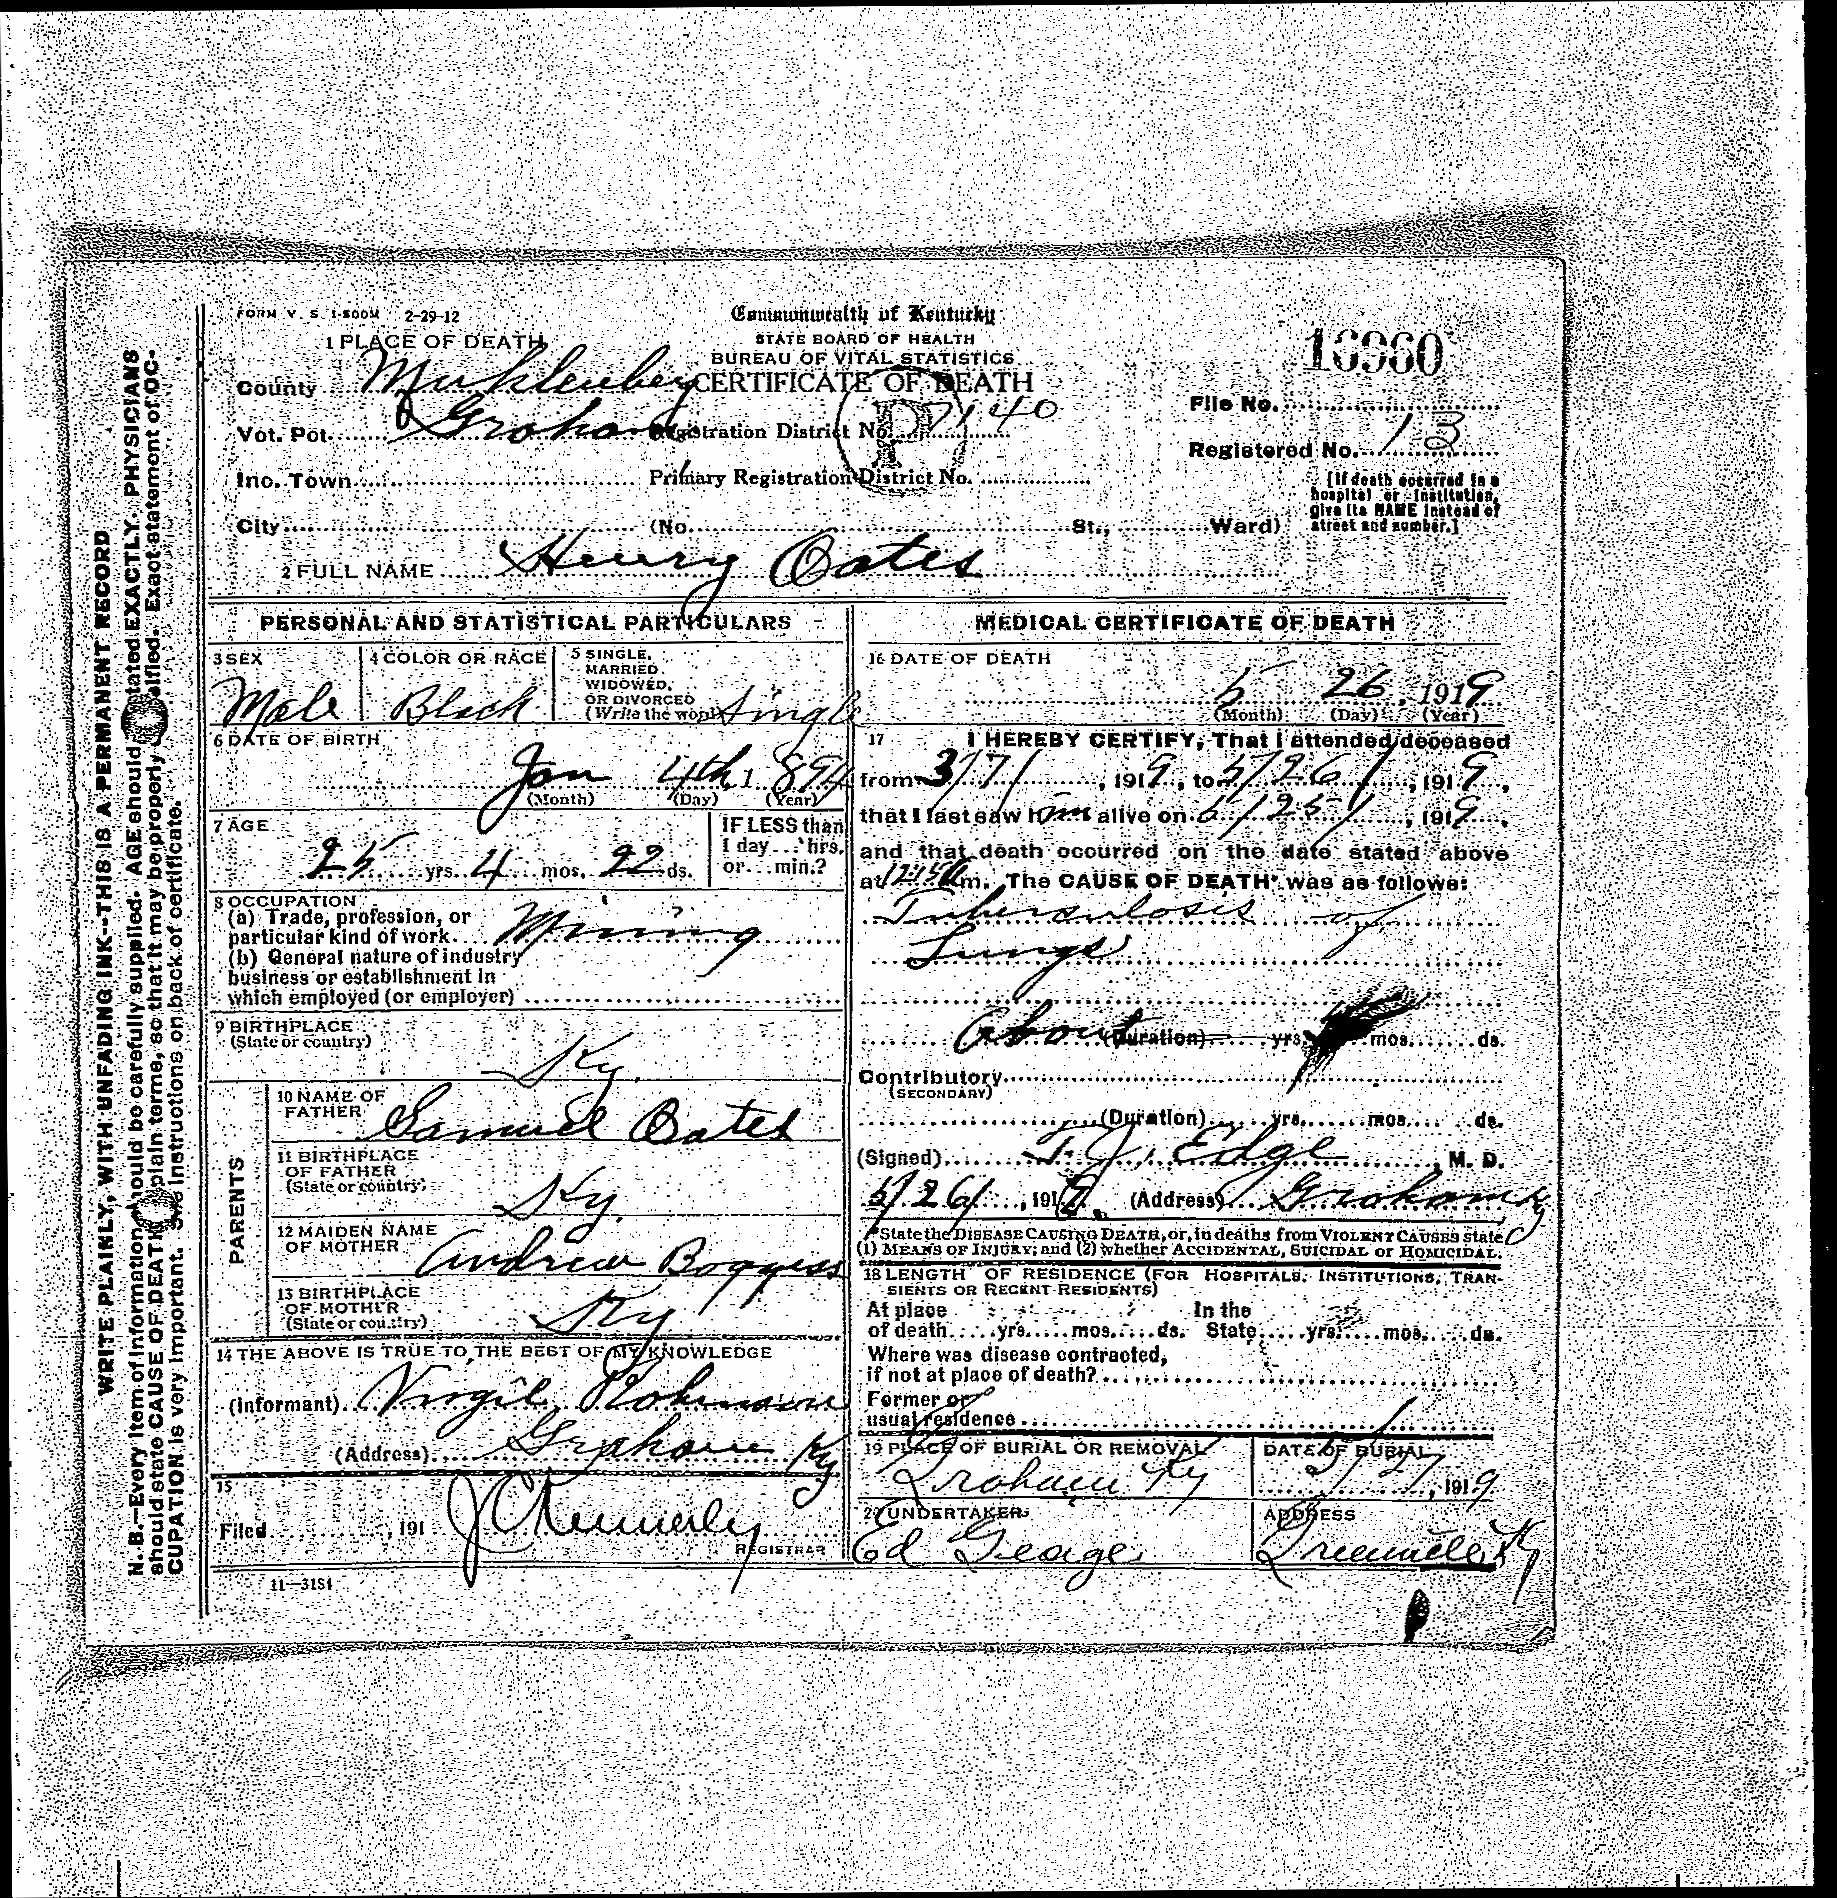 FORM V. S. 1-500M 2-29-12
Commonwealth of Kentucky
STATE BOARD OF HEALTH
BUREAU OF VITAL STATISTICS
CERTIFICATE OF DEATH
1 PLACE OF DEATH
County Muhlenberg
Vot. Pct. Graham
Registration District No. 7140
Inc. Town
Primary Registration District No.
City (No. St., Ward)
File No.
Registered No. 13
[If death occurred in a
hospital or institution,
give its NAME instead of
street and number.]
2 FULL NAME Henry Oates
PERSONAL AND STATISTICAL PARTICULARS
3 SEX
Male
4 COLOR OR RACE
Black
5 SINGLE,
MARRIED
WIDOWED,
OR DIVORCED
(Write the word) Single
6 DATE OF BIRTH
Jan 4th, 1894
(Month) (Day) (Year)
7 AGE
25 yrs. 4 mos. 22 ds.
IF LESS than
1 day ... hrs.
or ... min.?
8 OCCUPATION
(a) Trade, profession, or
particular kind of work Mining
(b) General nature of industry
business or establishment in
which employed (or employer)
9 BIRTHPLACE
(State or country)
Ky.
PARENTS
10 NAME OF
FATHER Samuel Oates
11 BIRTHPLACE
OF FATHER
(State or country)
Ky.
12 MAIDEN NAME
OF MOTHER Andrew Boggess
13 BIRTHPLACE
OF MOTHER
(State or country)
Ky
14 THE ABOVE IS TRUE TO THE BEST OF MY KNOWLEDGE
(Informant) Virgil
(Address) Graham Ky
15
Filed , 191 J C Kennerly
REGISTRAR
11—3181
MEDICAL CERTIFICATE OF DEATH
16 DATE OF DEATH
5 26, 1919
(Month) (Day) (Year)
17 I HEREBY CERTIFY, That I attended deceased
from 3/7/, 1919, to 5/26/, 1919,
that I last saw him alive on 5/25/, 1919,
and that death occurred on the date stated above
at m. The CAUSE OF DEATH* was as follows:
Tuberculosis of
Lungs
About (Duration) yrs. mos. ds.
Contributory
(SECONDARY)
(Duration) yrs. mos. ds.
(Signed) T. J. Edge, M. D.
5/26/, 1919. (Address) Graham Ky
*State the DISEASE CAUSING DEATH, or, in deaths from VIOLENT CAUSES state
(1) MEANS OF INJURY; and (2) whether ACCIDENTAL, SUICIDAL or HOMICIDAL.
18 LENGTH OF RESIDENCE (FOR HOSPITALS, INSTITUTIONS, TRAN-
SIENTS OR RECENT RESIDENTS)
At place In the
of death yrs. mos. ds. State yrs. mos. ds.
Where was disease contracted,
if not at place of death?
Former or
usual residence
19 PLACE OF BURIAL OR REMOVAL
Graham Ky
DATE OF BURIAL
5/27, 1919
20 UNDERTAKER
Ed George
ADDRESS
Greenville Ky
WRITE PLAINLY, WITH UNFADING INK--THIS IS A PERMANENT RECORD
N. B.—Every item of information should be carefully supplied. AGE should stated EXACTLY. PHYSICIANS
should state CAUSE OF DEATH plain terms, so that it may be properly classified. Exact statement of OC-
CUPATION is very important. See instructions on back of certificate.